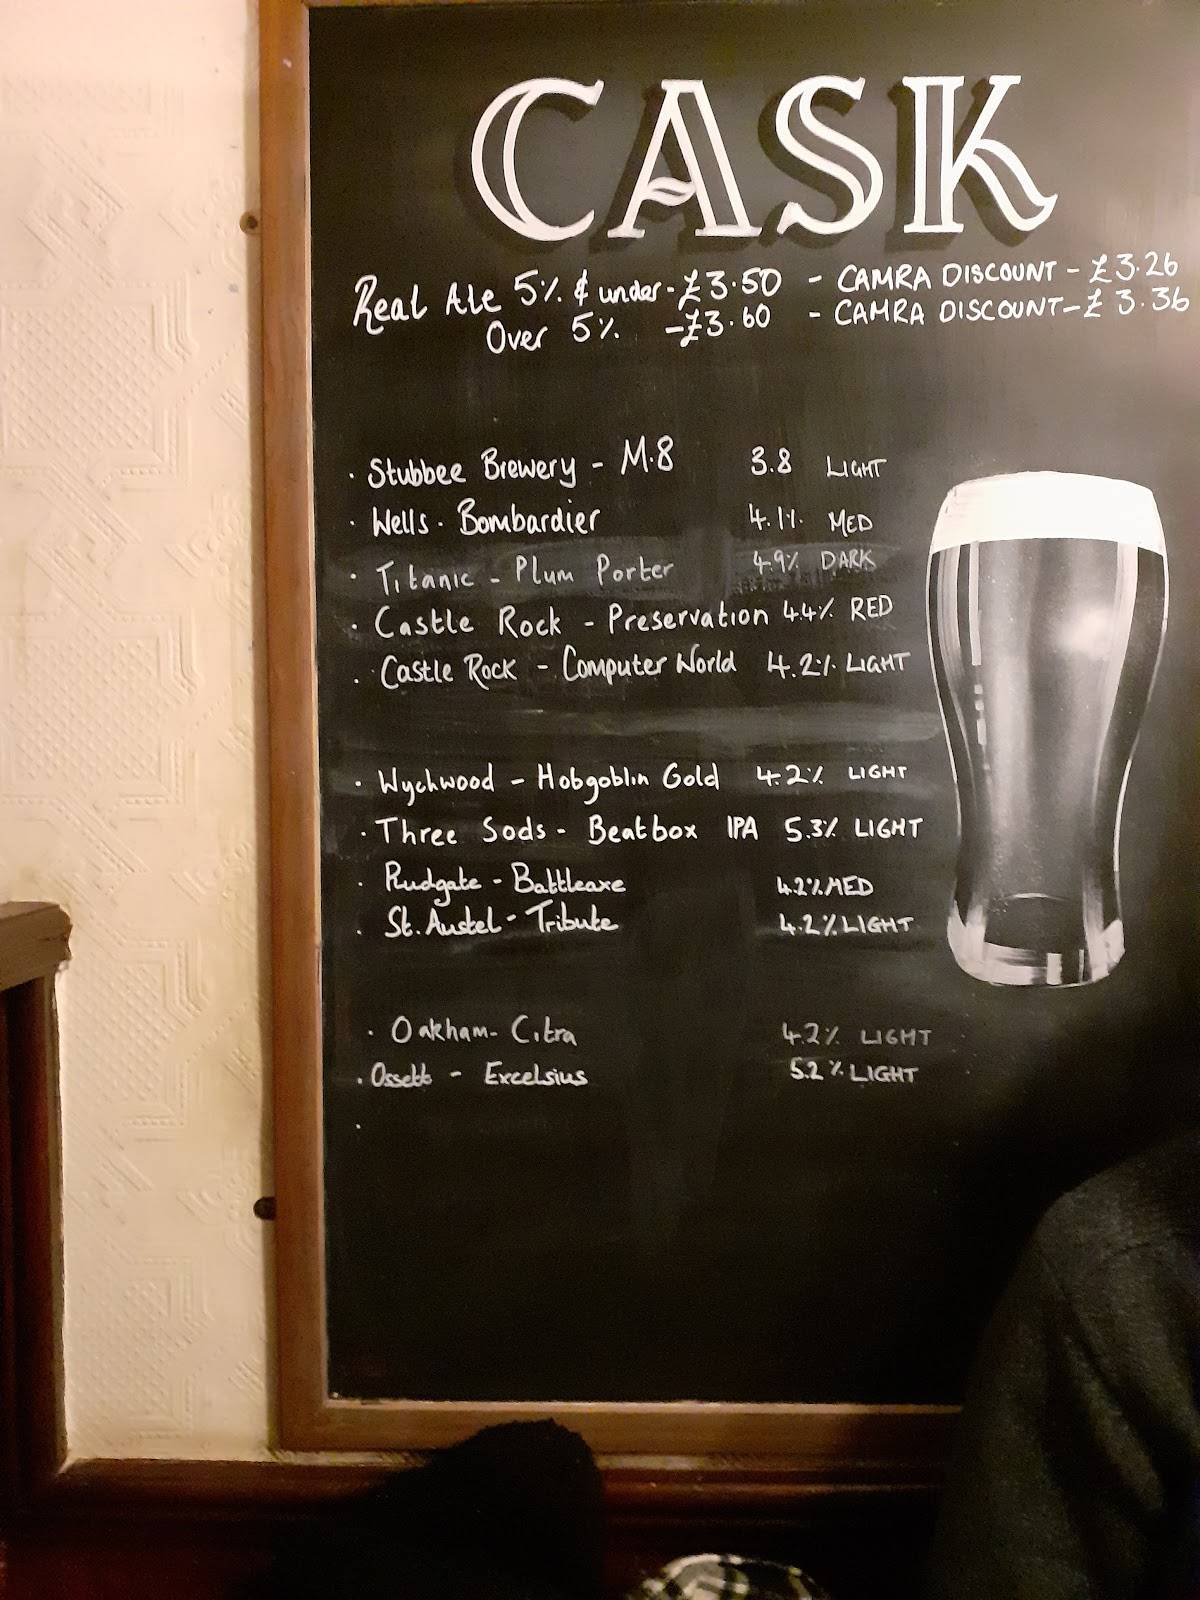 CASK
Real Ale 5% & under - £3.50 - CAMRA DISCOUNT - £3.26
Over 5% - £3.60 - CAMRA DISCOUNT - £3.36
· Stubbee Brewery - M.8 3.8 LIGHT
· Wells · Bombardier 4.1% MED
· Titanic - Plum Porter 4.9% DARK
· Castle Rock - Preservation 4.4% RED
· Castle Rock - Computer World 4.2% LIGHT
· Wychwood - Hobgoblin Gold 4.2% LIGHT
· Three Sods - Beatbox IPA 5.3% LIGHT
· Rudgate - Battleaxe 4.2% MED
· St. Austel - Tribute 4.2% LIGHT
· Oakham - Citra 4.2% LIGHT
· Ossett - Excelsius 5.2% LIGHT
·